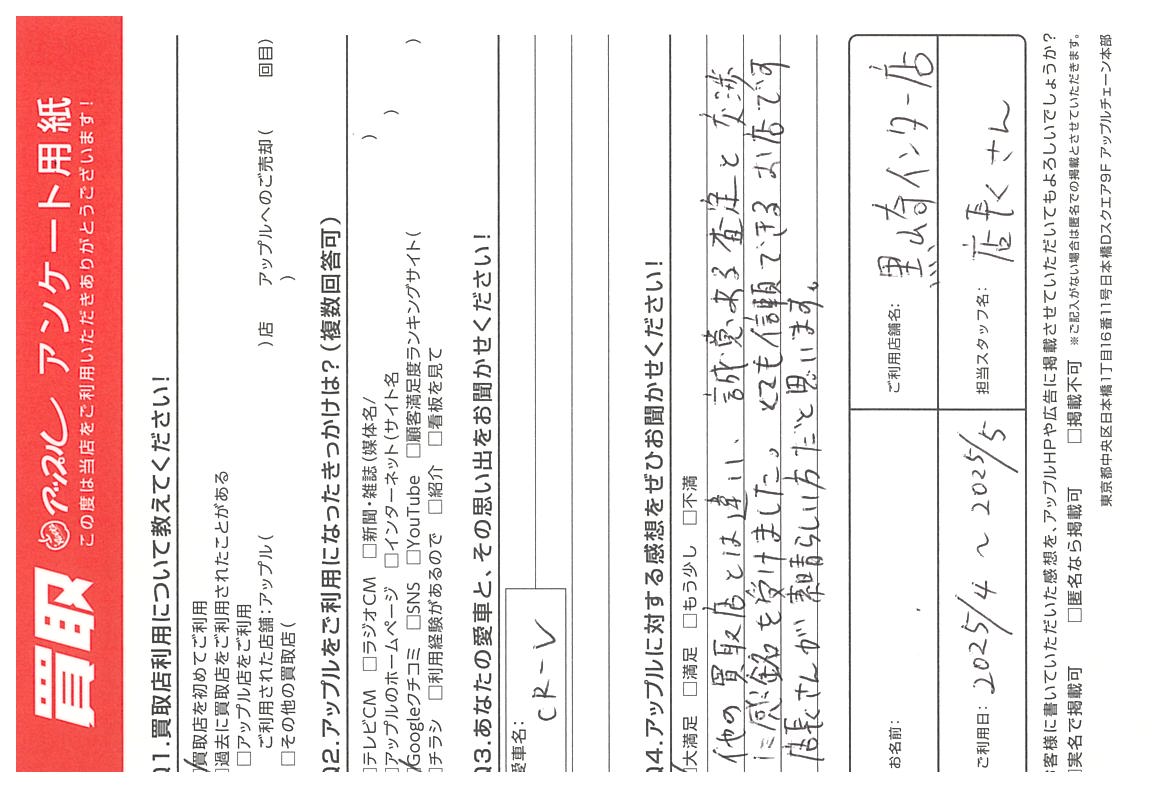 買取 アップル アンケート用紙
この度は当店をご利用いただきありがとうございます!
Q1.買取店利用について教えてください!
□買取店を初めてご利用
□過去に買取店をご利用されたことがある
□アップル店をご利用
ご利用された店舗:アップル( )店 アップルへのご売却( 回目)
□その他の買取店( )
Q2.アップルをご利用になったきっかけは?(複数回答可)
□テレビCM □ラジオCM □新聞・雑誌(媒体名/ )
□アップルのホームページ □インターネット(サイト名 )
□Googleクチコミ □SNS □YouTube □顧客満足度ランキングサイト( )
□チラシ □利用経験があるので □紹介 □看板を見て
Q3.あなたの愛車と、その思い出をお聞かせください!
愛車名:
CR-V
Q4.アップルに対する感想をぜひお聞かせください!
□大満足 □満足 □もう少し □不満
他の買取店とは違い、誠意ある査定と交渉
に感銘を受けました。とても信頼できるお店です
店長さんが素晴らしい方だと思います。
お名前:
ご利用店舗名: 黒崎インター店
ご利用日: 2025/4 〜 2025/5
担当スタッフ名: 店長さん
お客様に書いていただいた感想を、アップルHPや広告に掲載させていただいてもよろしいでしょうか?
□実名で掲載可 □匿名なら掲載可 □掲載不可 ※ご記入がない場合は匿名での掲載とさせていただきます。
東京都中央区日本橋1丁目16番11号日本橋Dスクエア9F アップルチェーン本部